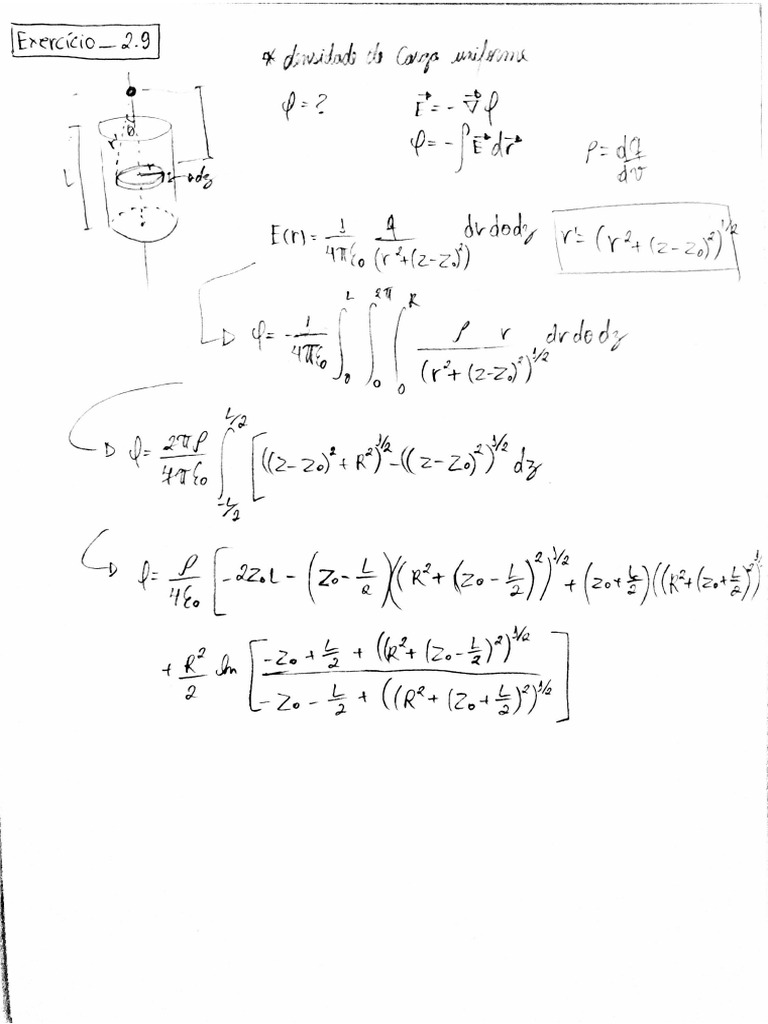 Exercício_2.9
* densidade de carga uniforme
φ = ?
E⃗ = -∇⃗φ
φ = -∫E⃗ dr⃗
ρ = dq/dv
L
r'
θ
r
dz
E(r) = 1/4πε₀ q/(r²+(z-z₀)²) dr dθ dz
r' = (r²+(z-z₀)²)^1/2
φ = -1/4πε₀ ∫₀^L ∫₀^2π ∫₀^R ρ r/(r²+(z-z₀)²)^1/2 dr dθ dz
φ = 2πρ/4πε₀ ∫_-L/2^L/2 [((z-z₀)²+R²)^1/2 - ((z-z₀)²)^1/2 dz
φ = ρ/4ε₀ [-2z₀L - (z₀-L/2)((R²+(z₀-L/2)²)^1/2 + (z₀+L/2)((R²+(z₀+L/2)²)^1/2
+ R²/2 ln [-z₀+L/2+((R²+(z₀-L/2)²)^1/2 / -z₀-L/2+((R²+(z₀+L/2)²)^1/2]